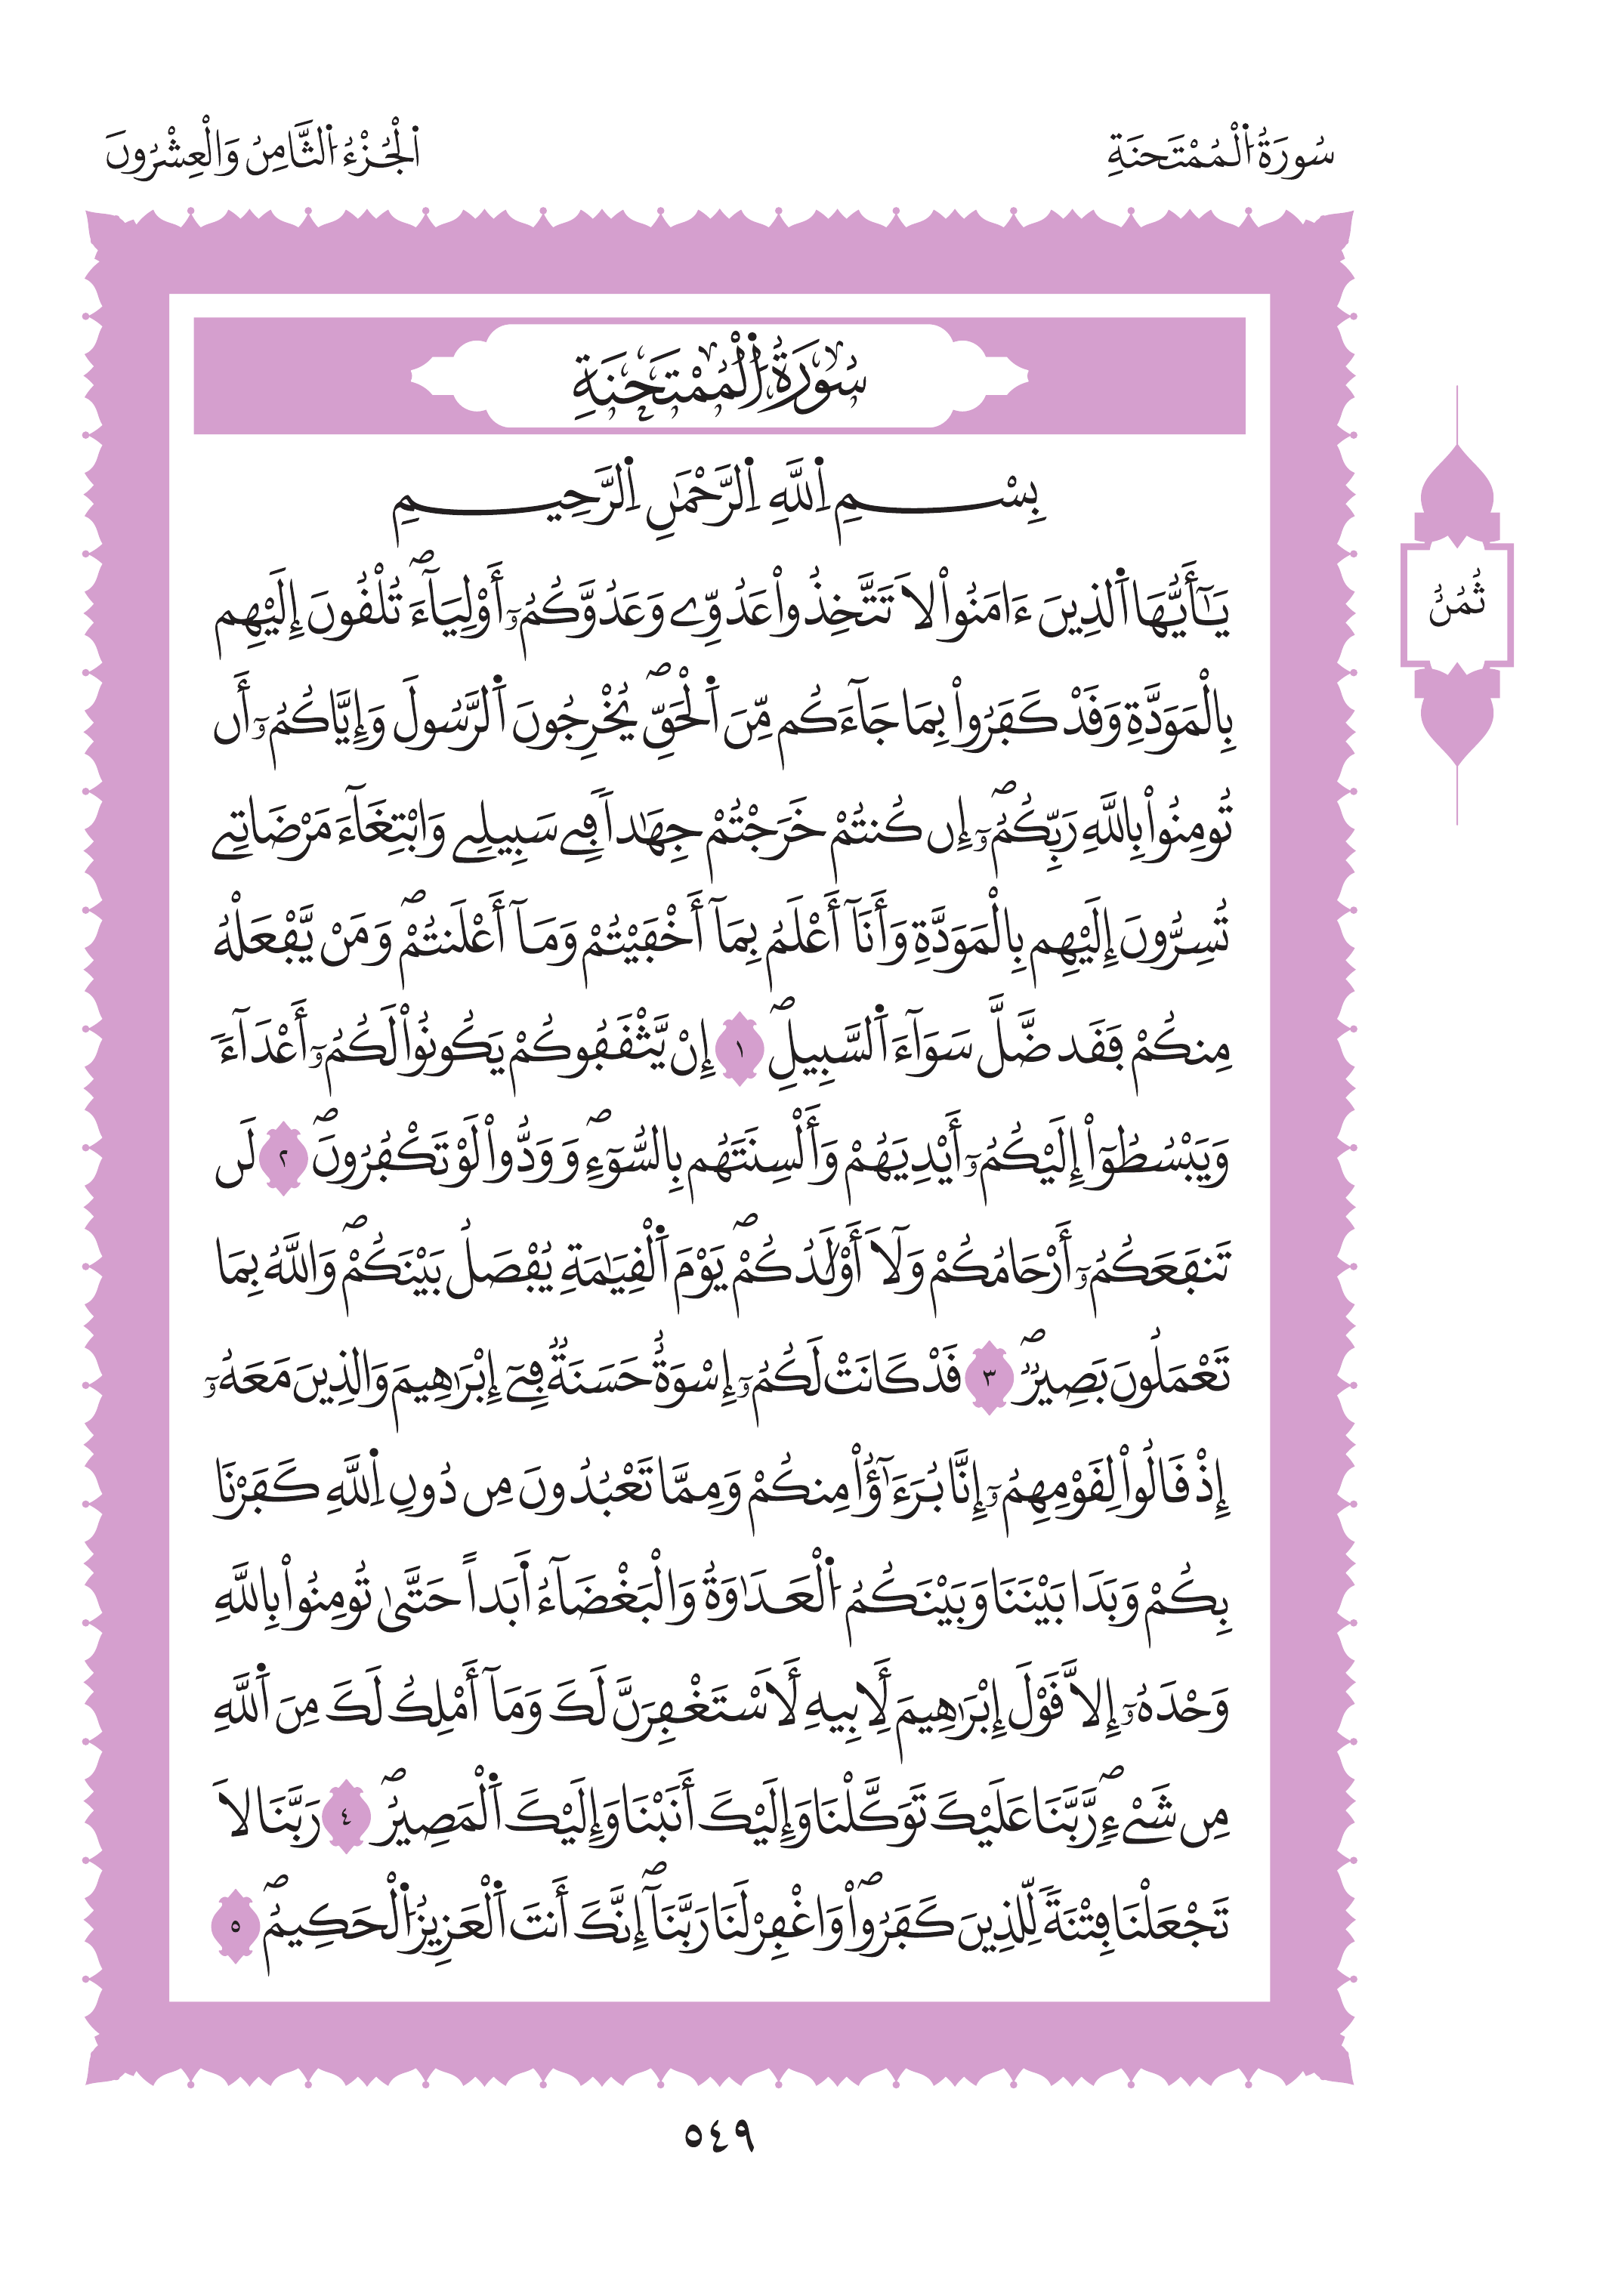 سُورَةُ اَ۬لْمُمْتَحِنَةِ
اَ۬لْجُزْءُ اُ۬لثَّامِنُ وَالْعِشْرُونَ
سُورَةُ اُ۬لْمُمْتَحِنَةِ
بِسْمِ اِ۬للَّهِ اِ۬لرَّحْمَٰنِ اِ۬لرَّحِيمِ
يَٰٓأَيُّهَا اَ۬لذِينَ ءَامَنُواْ لَا تَتَّخِذُواْ عَدُوِّے وَعَدُوَّكُمُۥٓ أَوْلِيَآءَۖ تُلْقُونَ إِلَيْهِم
ثُمُنُ
بِالْمَوَدَّةِ وَقَدْ كَفَرُواْ بِمَا جَآءَكُم مِّنَ اَ۬لْحَقِّۖ يُخْرِجُونَ اَ۬لرَّسُولَ وَإِيَّاكُمُۥٓ أَن
تُومِنُواْ بِاللَّهِ رَبِّكُمُۥٓۖ إِن كُنتُمْ خَرَجْتُمْ جِهَٰداٗ فِے سَبِيلِے وَابْتِغَآءَ مَرْضَاتِے
تُسِرُّونَ إِلَيْهِم بِالْمَوَدَّةِ وَأَنَآ أَعْلَمُ بِمَآ أَخْفَيْتُمْ وَمَآ أَعْلَنتُمْۖ وَمَنْ يَّفْعَلْهُ
مِنكُمْ فَقَد ضَّلَّ سَوَآءَ اَ۬لسَّبِيلِۖ ١ إِنْ يَّثْقَفُوكُمْ يَكُونُواْ لَكُمُۥٓ أَعْدَآءَٗ
وَيَبْسُطُوٓاْ إِلَيْكُمُۥٓ أَيْدِيَهُمْ وَأَلْسِنَتَهُم بِالسُّوٓءِۖ وَوَدُّواْ لَوْ تَكْفُرُونَۖ ٢ لَن
تَنفَعَكُمُۥٓ أَرْحَامُكُمْ وَلَآ أَوْلَٰدُكُمْۖ يَوْمَ اَ۬لْقِيَٰمَةِ يُفْصَلُ بَيْنَكُمْۖ وَاللَّهُ بِمَا
تَعْمَلُونَ بَصِيرٞۖ ٣ قَدْ كَانَتْ لَكُمُۥٓ إِسْوَةٌ حَسَنَةٞ فِےٓ إِبْرَٰهِيمَ وَالذِينَ مَعَهُۥٓ
إِذْ قَالُواْ لِقَوْمِهِمُۥٓ إِنَّا بُرَءَٰٓؤُاْ مِنكُمْ وَمِمَّا تَعْبُدُونَ مِن دُونِ اِ۬للَّهِ كَفَرْنَا
بِكُمْ وَبَدَا بَيْنَنَا وَبَيْنَكُمُ اُ۬لْعَدَٰوَةُ وَالْبَغْضَآءُ اَ۬بَداً حَتَّىٰ تُومِنُواْ بِاللَّهِ
وَحْدَهُۥٓ إِلَّا قَوْلَ إِبْرَٰهِيمَ لِأَبِيهِ لَأَسْتَغْفِرَنَّ لَكَ وَمَآ أَمْلِكُ لَكَ مِنَ اَ۬للَّهِ
مِن شَےْءٖۖ رَّبَّنَا عَلَيْكَ تَوَكَّلْنَا وَإِلَيْكَ أَنَبْنَا وَإِلَيْكَ اَ۬لْمَصِيرُۖ ٤ رَبَّنَا لَا
تَجْعَلْنَا فِتْنَةٗ لِّلذِينَ كَفَرُواْۖ وَاغْفِرْ لَنَا رَبَّنَآۖ إِنَّكَ أَنتَ اَ۬لْعَزِيزُ اُ۬لْحَكِيمُۖ ٥
٥٤٩